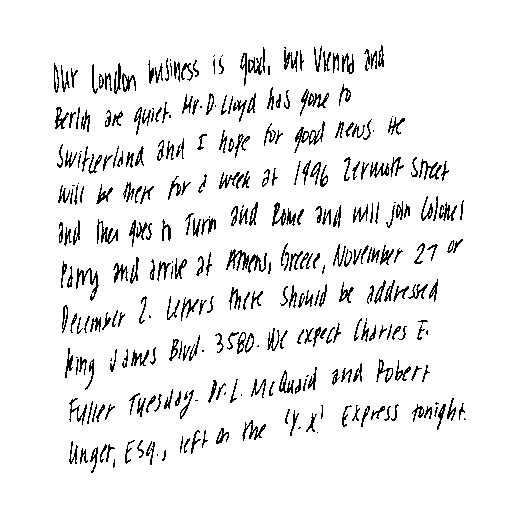 Our London business is good, but Vienna and
Berlin are quiet. Mr. D. Lloyd has gone to
Switzerland and I hope for good news. He
will be there for a week at 1996 Zermott Street
and then goes to Turin and Rome and will join Colonel
Parry and arrive at Athens, Greece, November 27 or
December 2. Letters there should be addressed
King James Blvd. 3580. We expect Charles E.
Fuller Tuesday. Dr. L. McQuaid and Robert
Unger, Esq., left on the 'Y.X.' Express tonight.